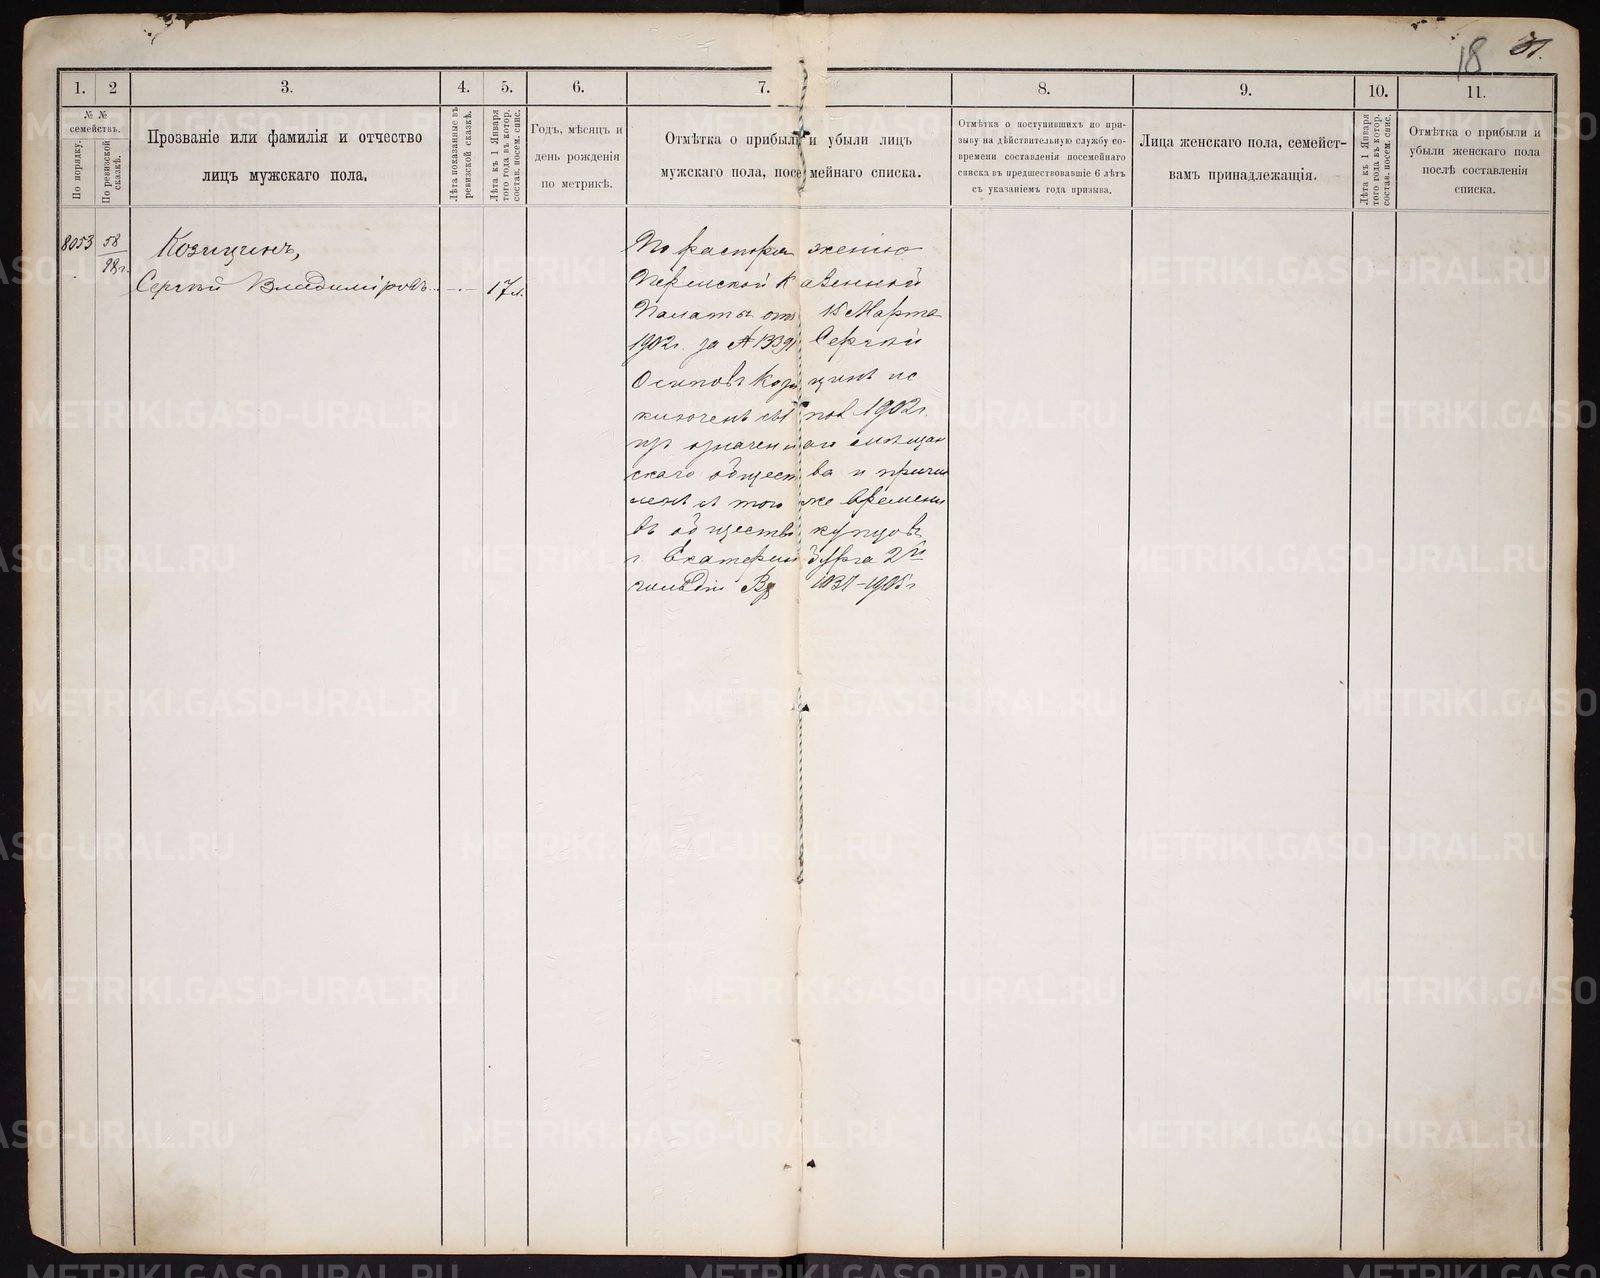 18 31.
1. 2 3. 4. 5. 6. 7. 8. 9. 10. 11.
№ №
семействъ.
По порядку.
По ревизской
сказкѣ.
Прозваніе или фамилія и отчество
лицъ мужскаго пола.
Лѣта показанные въ
ревизской сказкѣ.
Лѣта къ 1 Января
того года въ котор.
состав. посем. спис.
Годъ, мѣсяцъ и
день рожденія
по метрикѣ.
Отмѣтка о прибыли и убыли лицъ
мужскаго пола, посемейнаго списка.
Отмѣтка о поступившихъ по при-
зыву на дѣйствительную службу со-
времени составленія посемейнаго
списка въ предшествовавшіе 6 лѣтъ
съ указаніемъ года призыва.
Лица женскаго пола, семейст-
вамъ принадлежащія.
Лѣта къ 1 Января
того года въ котор.
состав. посем. спис.
Отмѣтка о прибыли и
убыли женскаго пола
послѣ составленія
списка.
8053 58
98г.
Козицинъ,
Сергѣй Владиміровъ. —.— 17 л.
По распоряженію
Пермской Казенной
Палаты отъ 15 Марта
1902г. за № 13391 Сергѣй
Осиповъ Козицинъ ис
ключенъ съ 1 пол 1902г.
изъ означеннаго мѣщан
скаго общества и причи
сленъ съ того же времени
въ общество купцовъ
г. Екатеринбурга 2й
гильдіи Вх 1031-1905 г
METRIKI.GASO-URAL.RU